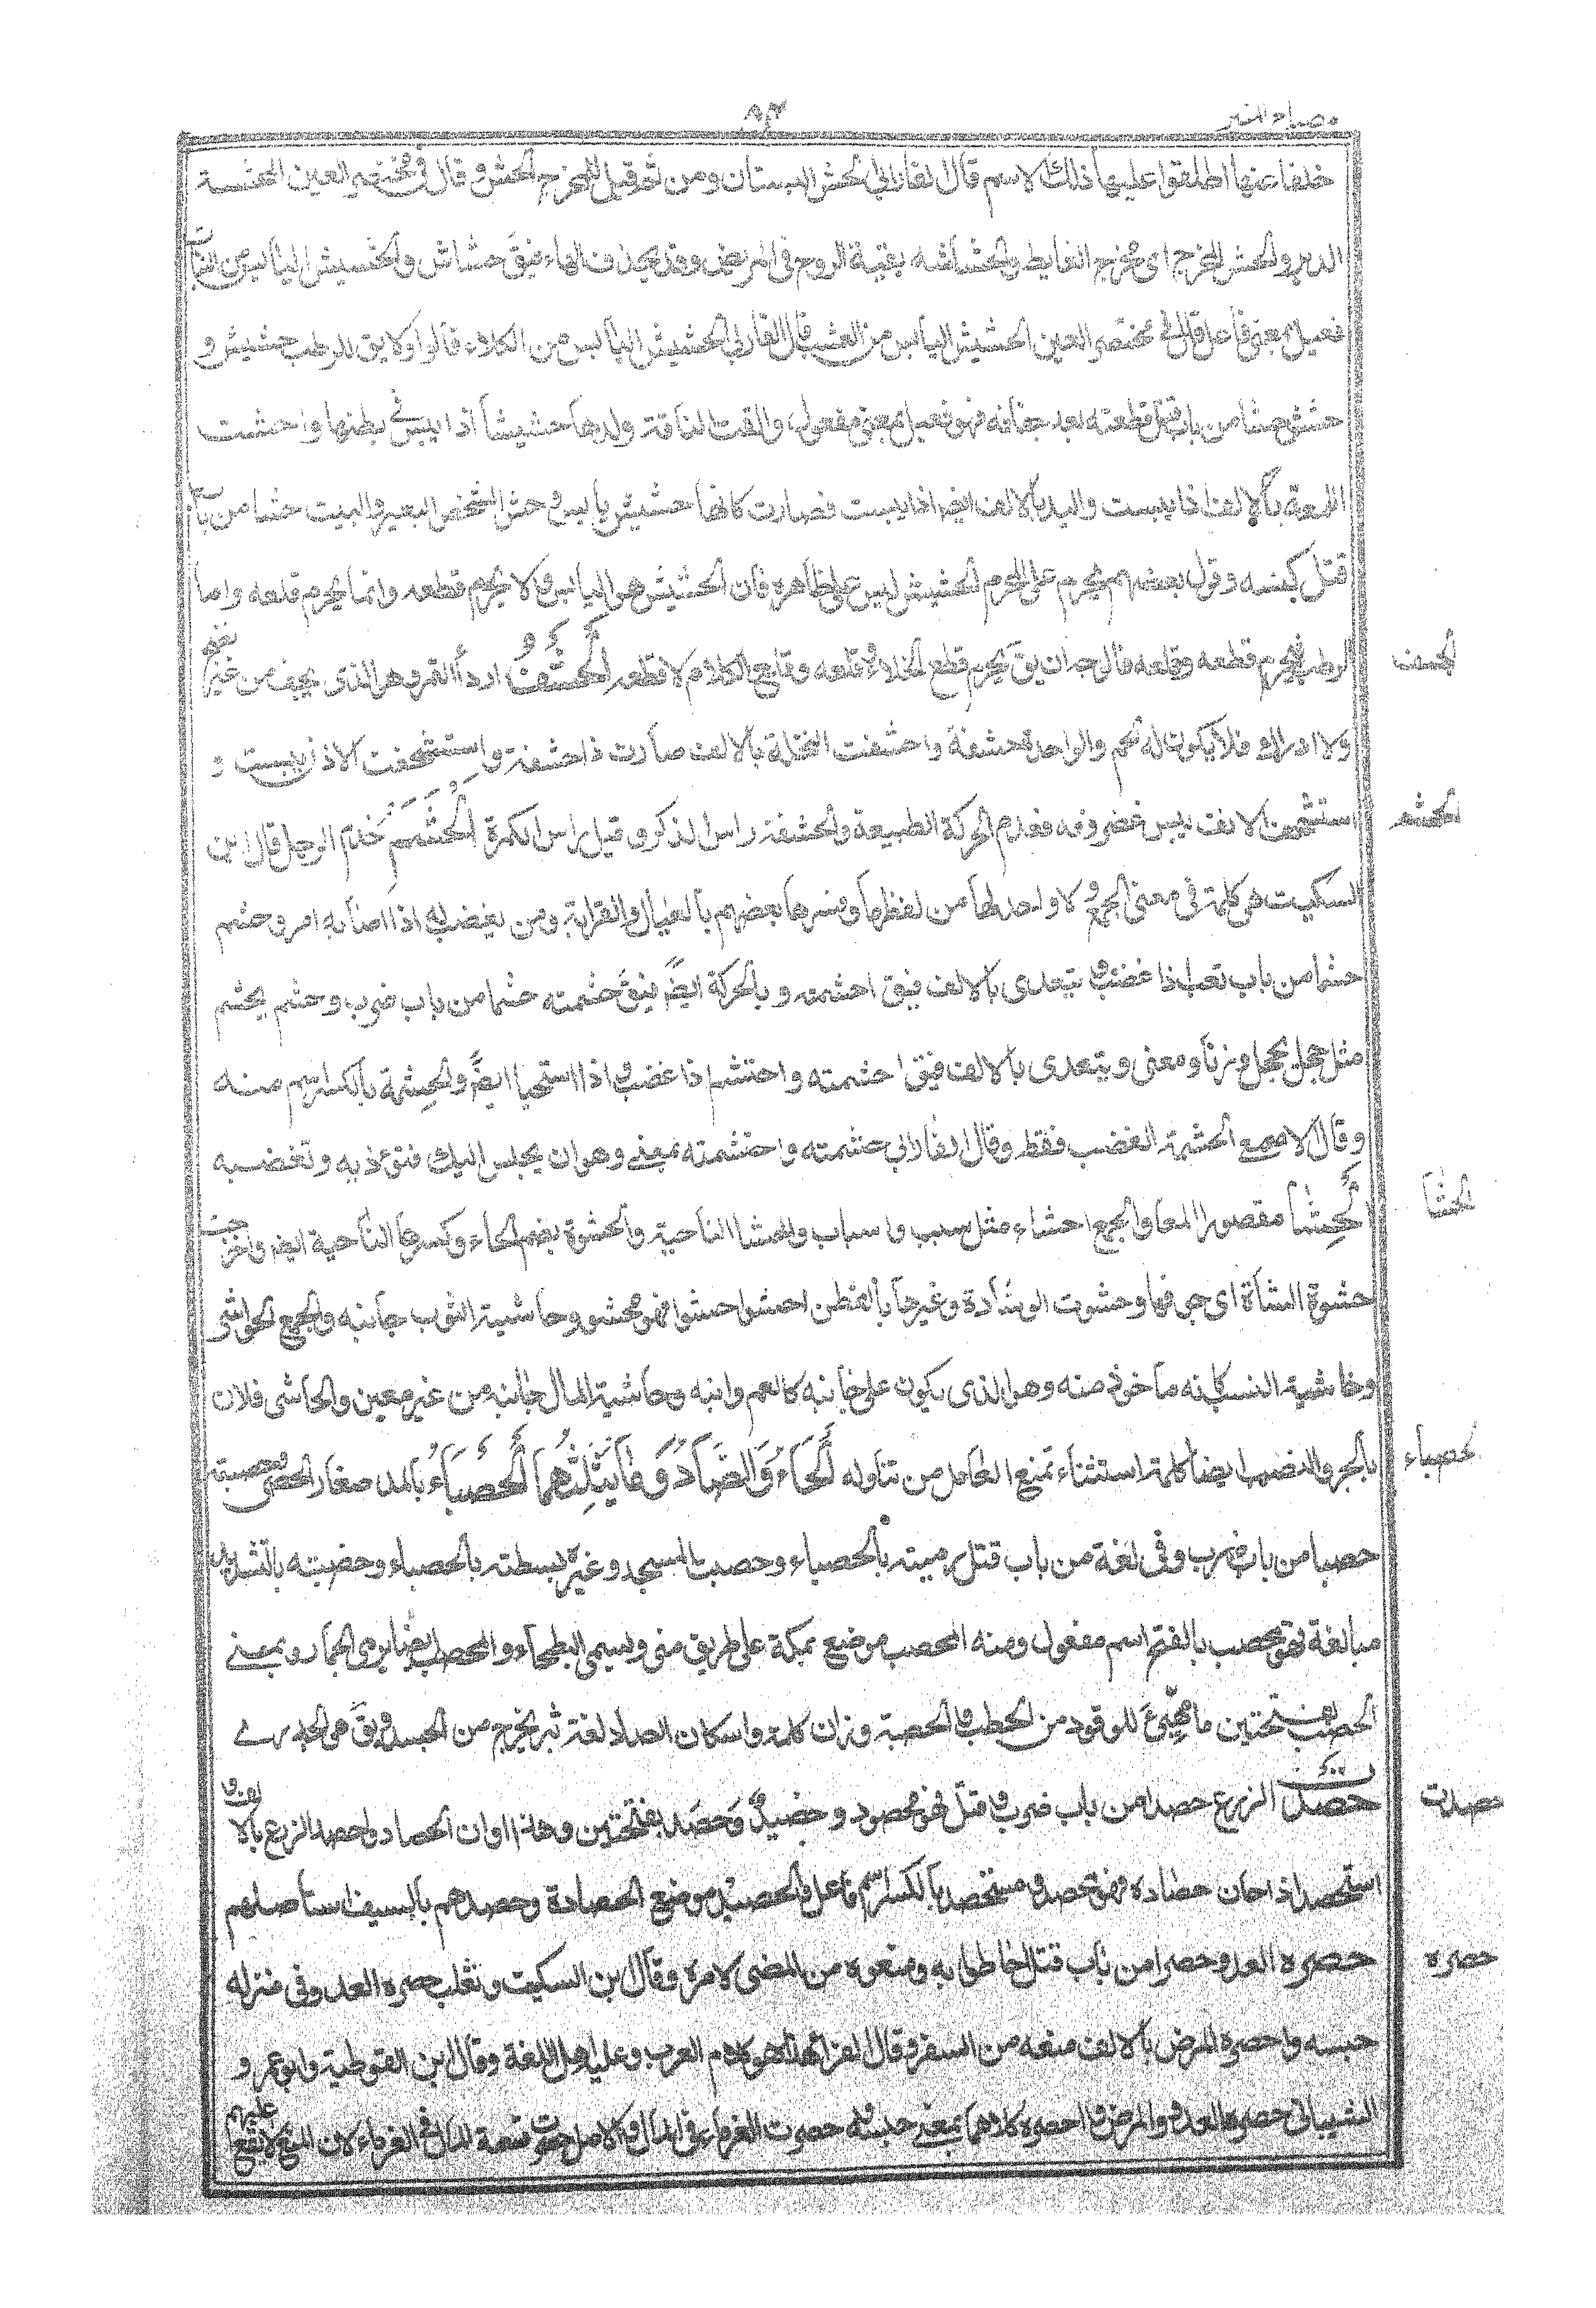 مصباح المنير
٨٣
خلفا عنها اطلقوا عليها ذلك الاسم قال الفارابي الحش البستان ومن ثم قيل للمخرج الحش وقال في مختصر العين المحشة
الدبر والحش المخرج اى مخرج الغايط والحشاشة بقية الروح في المريض وقد يحذف الهاء فيق حشاش والحشيش اليابس من النبات
فعيل بمعنى فاعل قال في مختصر العين الحشيش اليابس من العشب وقال الفارابي الحشيش اليابس من الكلاء قالوا ولا يق للرطب حشيش و
حششته حشا من باب قتل قطعته بعد جفافه فهو فعيل بمعنى مفعول والقت الناقة ولدها حشيشا اذا يبس في بطنها واحشت
اللمعة بالالف اذا يبست واليد بالالف ايضا اذا يبست فصارت كانها حشيش يابس وحش الشخص البعير والبيت حشا من باب
قتل كنسه وقول بعضهم يحرم على المحرم الحشيش ليس على ظاهره فان الحشيش هو اليابس ولا يحرم قطعه وانما يحرم قلعه واما
الرطب فيحرم قطعه وقلعه فالوجه ان يق يحرم قطع الخلا وقلعه وقلع الكلاء لا قطعه الحَشَفُ اردأ التمر وهو الذى يجف من غير نضج
ولا ادراك فلا يكون له لحم والواحدة حشفة واحشفت النخلة بالالف صارت ذا حشفة واستحشفت الاذن يبست و
استحشف الانف يبس غضروفه فعدم الحركة الطبيعة والحشفة راس الذكر وقيل راس الكمرة الحَشَمُ خدم الرجل قال ابن
السكيت هى كلمة في معنى الجمع ولا واحد لها من لفظها وفسرها بعضهم بالعيال والقرابة ومن يغضب له اذا اصابه امر وحشم
حشما من باب تعب اذا غضب ويتعدى بالالف فيق احشمته وبالحركة ايضا فيق حشمته حشما من باب ضرب وحشم يحشم
مثل خجل يخجل وزنا ومعنى ويتعدى بالالف فيق احشمته واحتشم اذا غضب واذا استحيا ايضا والحِشمة بالكسر اسم منه
وقال الاصمعي الحشمة الغضب فقط وقال الفارابي حشمته واحتشمته بمعنى وهو ان يجلس اليك فتؤذيه وتغضبه
الحَشا مقصور المعا والجمع احشاء مثل سبب واسباب والحشا الناحية والحشوة بضم الحاء وكسرها الناحية ايضا واخرجت
حشوة الشاة اى جوفها وحشوت الوسادة وغيرها بالقطن احشوا حشوا فهو محشو وحاشية الثوب جانبه والجمع الحواشى
وحاشية النسب كانه ماخوذ منه وهو الذى يكون على جانبه كالعم وابنه وحاشية المال جانبه من غير معين والحاشى فلان
بالجر والنصب ايضا كلمة استثناء تمنع العامل من تناوله اَلْحَاءُ وَالصَّادُ وَمَا يَثْلِثُهُمَا اَلْحَصْبَاءُ بالمد صغار الحصى وحصبته
حصبا من باب ضرب وفى لغة من باب قتل رميته بالحصباء وحصبت المسجد وغيره بسطته بالحصباء وحصبته بالتشديد
مبالغة فهو محصب بالفتح اسم مفعول ومنه المحصب موضع بمكة على طريق منى ويسمى البطحاء والمحصب ايضا مرمى الجمار وبمعنى
الحصب بفتحتين ما هيئ للوقود من الحطب والحصبة وزان كلمة واسكان الصاد لغة بثر يخرج من الجسد ويق هى الجدرى
حصدت الزرع حصدا من باب ضرب وقتل فهو محصود وحصيد وحصد بفتحتين وهذا اوان الحصاد واحصد الزرع بالالف و
استحصد اذا حان حصاده فهو محصد ومستحصد بالكسر اسم فاعل والحصيدة موضع الحصادة وحصدهم بالسيف استاصلهم
حصره العدو حصرا من باب قتل احاطوا به ومنعوه من المضى لامره وقال ابن السكيت وثعلب حصره العدو فى منزله
حبسه واحصره المرض بالالف منعه من السفر وقال الفراء هذا هو كلام العرب وعليه اهل اللغة وقال ابن القوطية وابو عمرو
الشيبانى حصره العدو والمرض واحصره كلاهما بمعنى حبسه وحصرت الغرماء فى المال والاصل حصرت قسمة المال فى الغرماء لان المنع لا يقع عليهم
الحشف
الحشم
الحشا
حصباء
حصدت
حصره